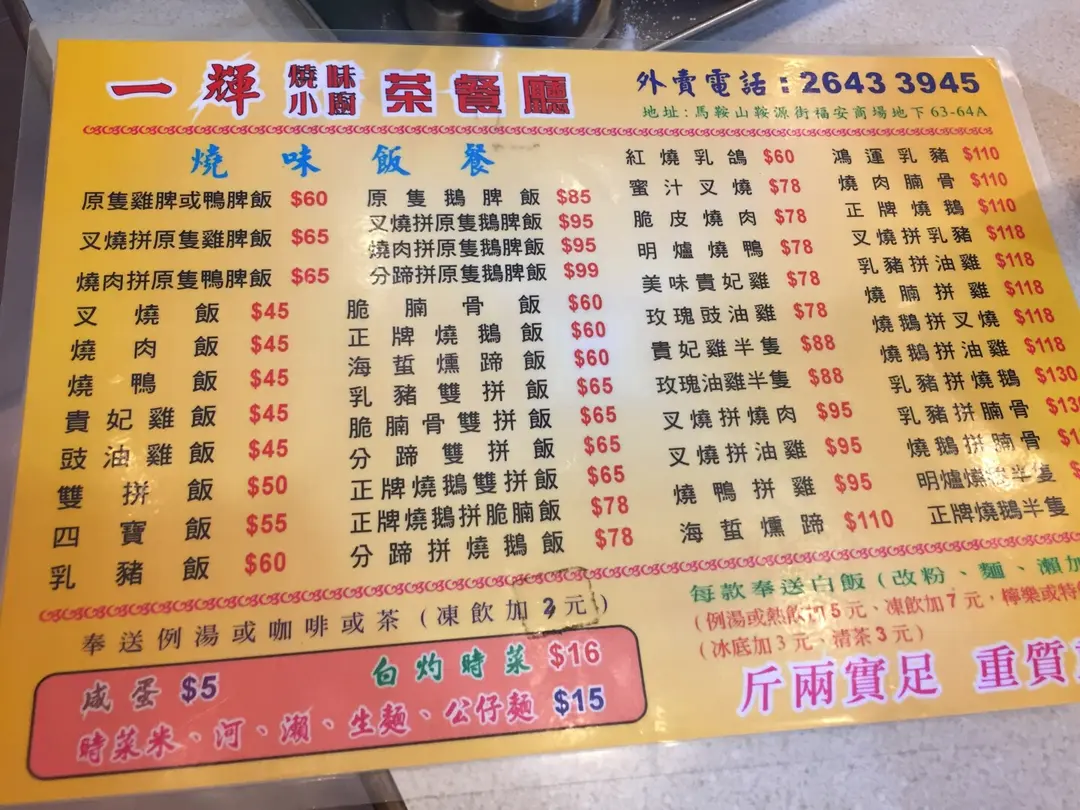 一輝 燒味小廚 茶餐廳
外賣電話：2643 3945
地址：馬鞍山鞍源街福安商場地下 63-64A
燒味飯餐
原隻雞脾或鴨脾飯 $60
叉燒拼原隻雞脾飯 $65
燒肉拼原隻鴨脾飯 $65
叉燒飯 $45
燒肉飯 $45
燒鴨飯 $45
貴妃雞飯 $45
豉油雞飯 $45
雙拼飯 $50
四寶飯 $55
乳豬飯 $60
原隻鵝脾飯 $85
叉燒拼原隻鵝脾飯 $95
燒肉拼原隻鵝脾飯 $95
分蹄拼原隻鵝脾飯 $99
脆腩骨飯 $60
正牌燒鵝飯 $60
海蜇燻蹄飯 $60
乳豬雙拼飯 $65
脆腩骨雙拼飯 $65
分蹄雙拼飯 $65
正牌燒鵝雙拼飯 $65
正牌燒鵝拼脆腩飯 $78
分蹄拼燒鵝飯 $78
紅燒乳鴿 $60
蜜汁叉燒 $78
脆皮燒肉 $78
明爐燒鴨 $78
美味貴妃雞 $78
玫瑰豉油雞 $78
貴妃雞半隻 $88
玫瑰油雞半隻 $88
叉燒拼燒肉 $95
叉燒拼油雞 $95
燒鴨拼雞 $95
海蜇燻蹄 $110
鴻運乳豬 $110
燒肉腩骨 $110
正牌燒鵝 $110
叉燒拼乳豬 $118
乳豬拼油雞 $118
燒腩拼雞 $118
燒鵝拼叉燒 $118
燒鵝拼油雞 $118
乳豬拼燒鵝 $130
乳豬拼腩骨 $130
燒鵝拼腩骨
明爐燒鴨半隻
正牌燒鵝半隻
奉送例湯或咖啡或茶（凍飲加3元）
咸蛋 $5
白灼時菜 $16
時菜米、河、瀨、生麵、公仔麵 $15
每款奉送白飯（改粉、麵、瀨加
（例湯或熱飲加5元、凍飲加7元，檸樂或特
（冰底加3元、清茶3元）
斤兩實足 重質